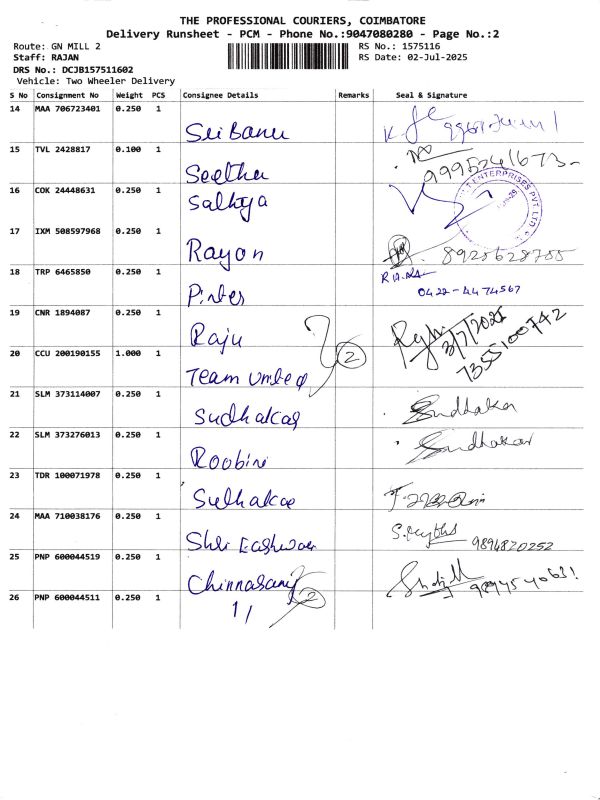 THE PROFESSIONAL COURIERS, COIMBATORE
Delivery Runsheet - PCM - Phone No.:9047080280 - Page No.:2
Route: GN MILL 2 RS No.: 1575116
Staff: RAJAN RS Date: 02-Jul-2025
DRS No.: DCJB157511602
Vehicle: Two Wheeler Delivery
S No Consignment No Weight PCS Consignee Details Remarks Seal & Signature
14 MAA 706723401 0.250 1
Sri Banu
15 TVL 2428817 0.100 1
Seetha 9995241673
16 COK 24448631 0.250 1
Sathya ENTERPRISES PVT. LTD
17 IXM 508597968 0.250 1
Rayon 8925628755
18 TRP 6465850 0.250 1
0422-4474567
19 CNR 1894087 0.250 1
Raju 3/7/2025
7355100742
20 CCU 200190155 1.000 1 2
Team United
21 SLM 373114007 0.250 1
Sudhakar Sudhakar
22 SLM 373276013 0.250 1
Roobini Sudhakar
23 TDR 100071978 0.250 1
24 MAA 710038176 0.250 1
Shri Eashwar 9894820252
25 PNP 600044519 0.250 1
Chinnasamy
26 PNP 600044511 0.250 1 2
11